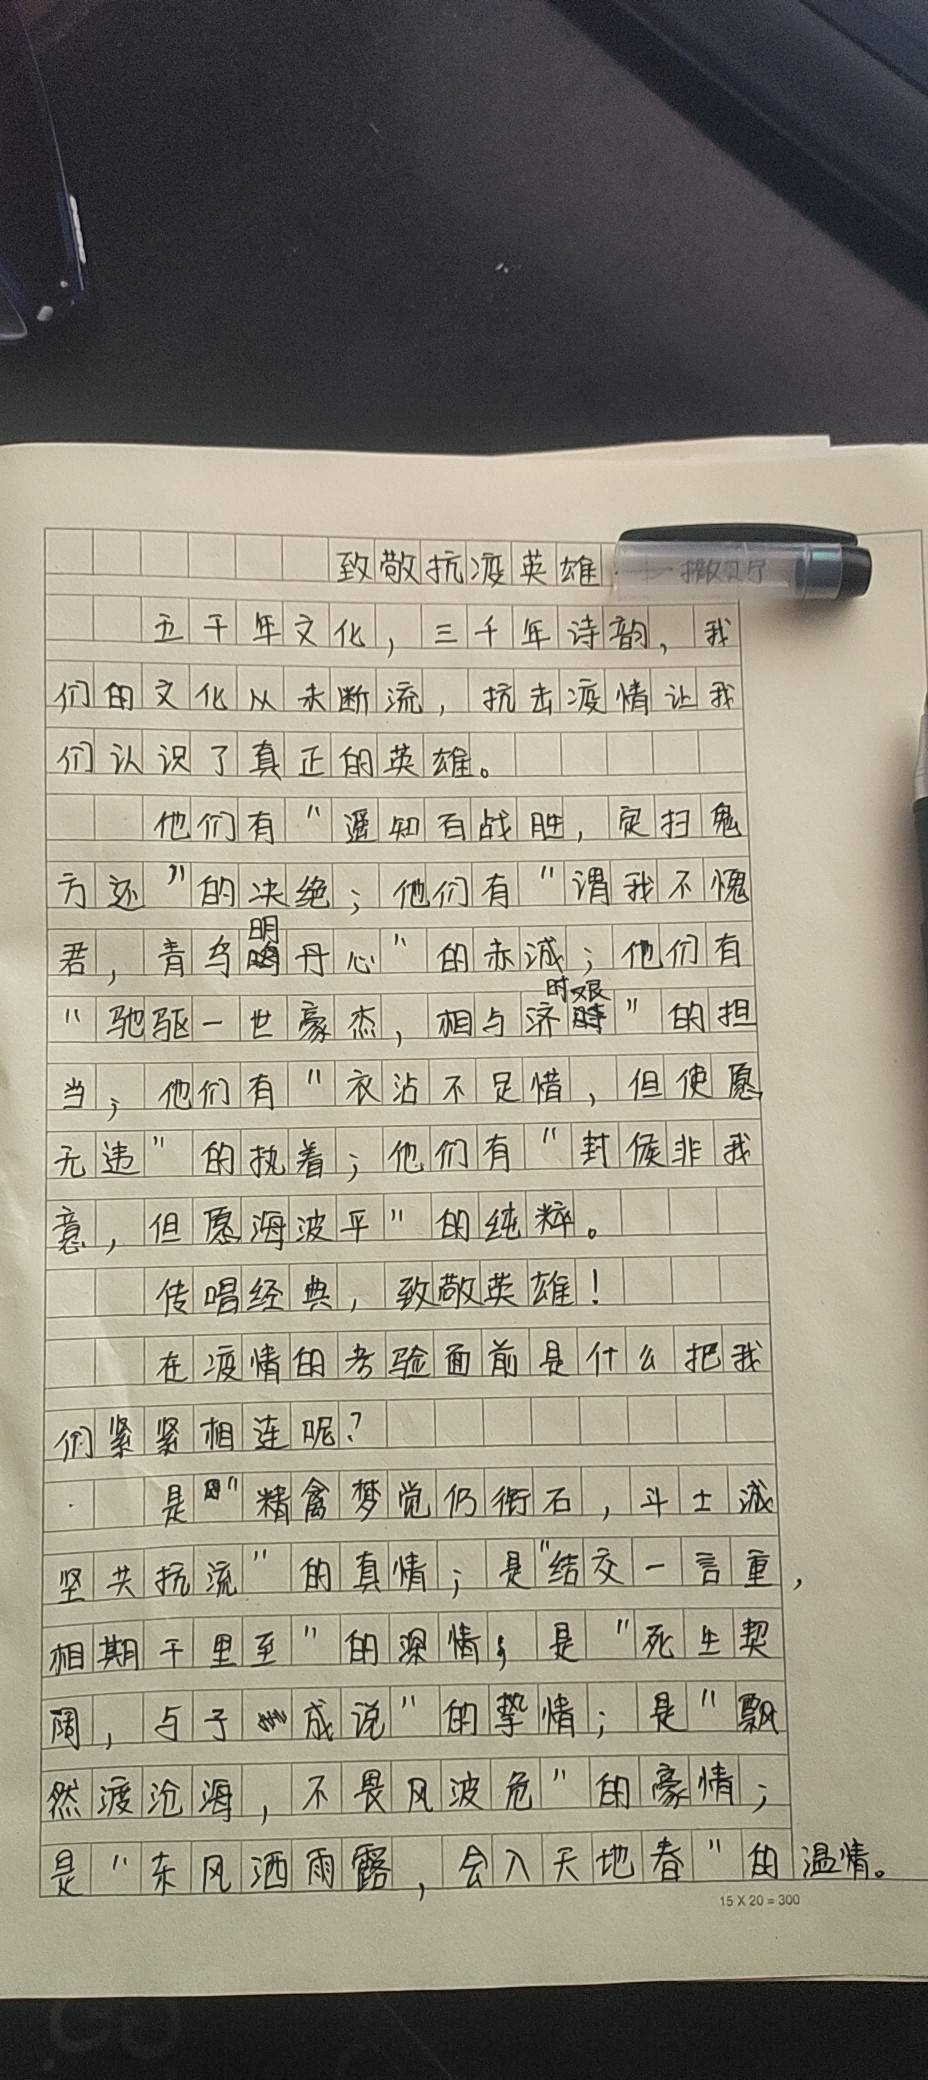 致敬抗疫英雄
五千年文化，三千年诗韵，我
们的文化从未断流，抗击疫情让我
们认识了真正的英雄。
他们有“遥知百战胜，定扫鬼
方还”的决绝；他们有“谓我不愧
君，青鸟明丹心”的赤诚；他们有
“驰驱一世豪杰，相与济时艰”的担
当；他们有“衣沾不足惜，但使愿
无违”的执着；他们有“封侯非我
意，但愿海波平”的纯粹。
传唱经典，致敬英雄！
在疫情的考验面前是什么把我
们紧紧相连呢？
是“精禽梦觉仍衔石，斗士诚
坚共抗流”的真情；是“结交一言重，
相期千里至”的深情；是“死生契
阔，与子成说”的挚情；是“飘
然渡沧海，不畏风波危”的豪情；
是“东风洒雨露，会入天地春”的温情。
15 X 20 = 300